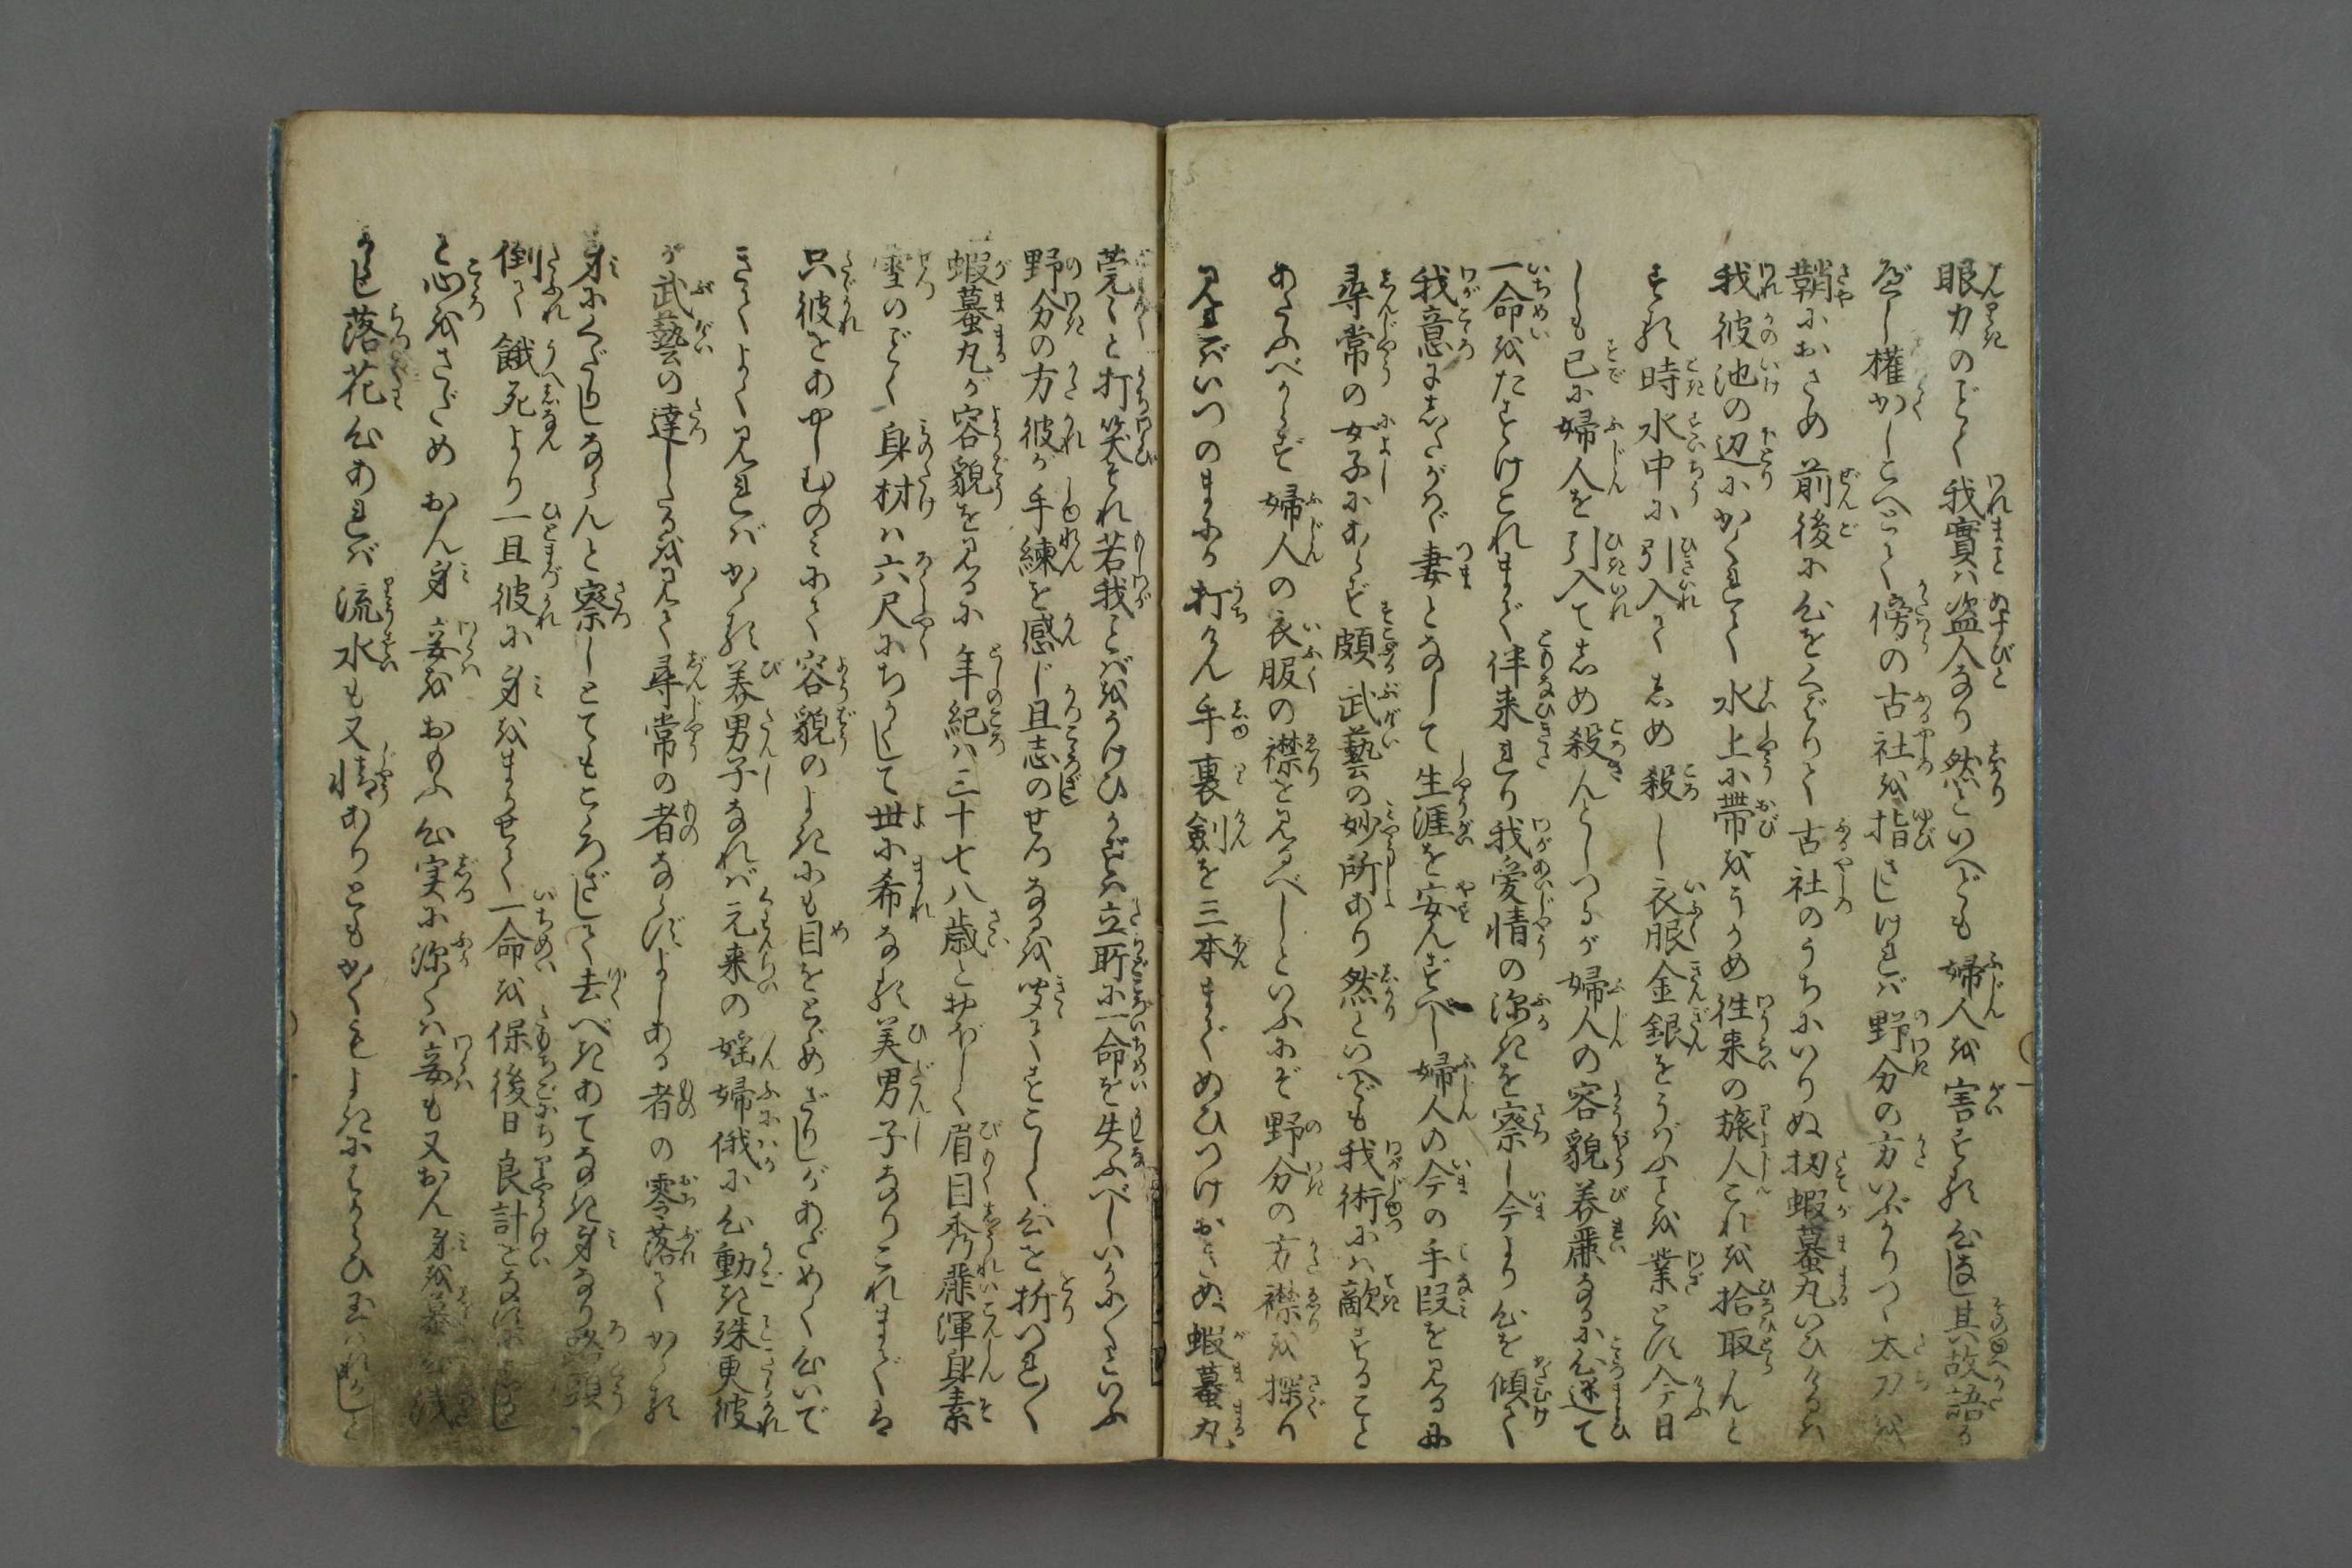 眼力のごとく我實は盗人なり然といへども婦人を害する心なし其故語る
べし權かしこへとて傍の古社を指さしければ野分の方いぶかりつゝ太刀を
鞘におさめ前後に心をくばりて古社のうちにいりぬ扨蝦蟇丸いひけるは
我彼池の辺にかくれて水上に帯をうかめ徃来の旅人これを拾取んと
する時水中に引入てしめ殺し衣服金銀をうばふを業とす今日
しも已に婦人を引入てしめ殺んとしつるが婦人の容貌美麗なるに心迷て
一命をたすけこれまで伴来れり我愛情の深きを察し今より心を傾て
我意にしたがひ妻となりして生涯を安んずべし婦人の今の手段を見るに
尋常の女子にあらず頗武藝の妙所あり然といへども我術には敵すること
あたふべからず婦人の衣服の襟を見るべしといふにぞ野分の方襟を探り
見ればいつのまにか打けん手裏劍を三本までぬひつけおきぬ蝦蟇丸
莞〻と打笑それ若我ことばをうけひかずは立所に一命を失ふべしいかに〳〵といふ
野分の方彼が手練を感じ且志のせつなるを聞てすこしく心を折つれ〳〵
蝦蟇丸が容貌を見るに年紀は三十七八歳とおぼしく眉目秀麗渾身素
雪のごとく身材は六尺にちかくして世に希なる美男子なりこれまでは
只彼をあやしむのみにて容貌のよきにも目をとゞめざりしがあだめく心いで
きてよく見ればかゝる美男子なれば元来の婬婦俄に心動き殊更彼
が武藝の達したるを見て尋常の者ならずよしある者の零落てかゝる
身にくだりしならんと察しとてもこゝろざして去べきあてなき身なり路頭に
倒て餓死より一旦彼に身をまかせて一命を保後日良計をなすにしかじ
と心をさだめおん身妾をおもふ心実に深くは妾も又おん身を慕心浅
からじ落花心あれば流水も又情ありともかくもよきにはからひ玉はれかしと